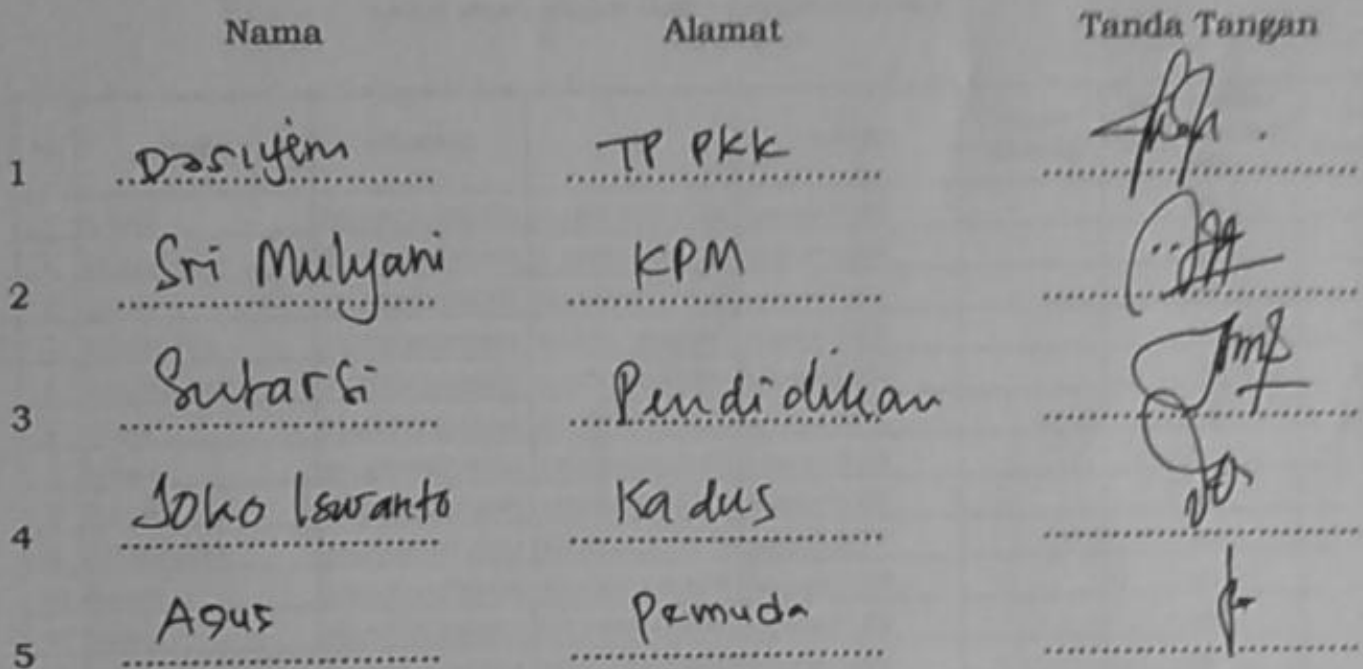 Nama Alamat Tanda Tangan
1 Dasiyem TP PKK
2 Sri Mulyani KPM
3 Sutarsi Pendidikan
4 Joko Iswanto Kadus
5 Agus Pemuda